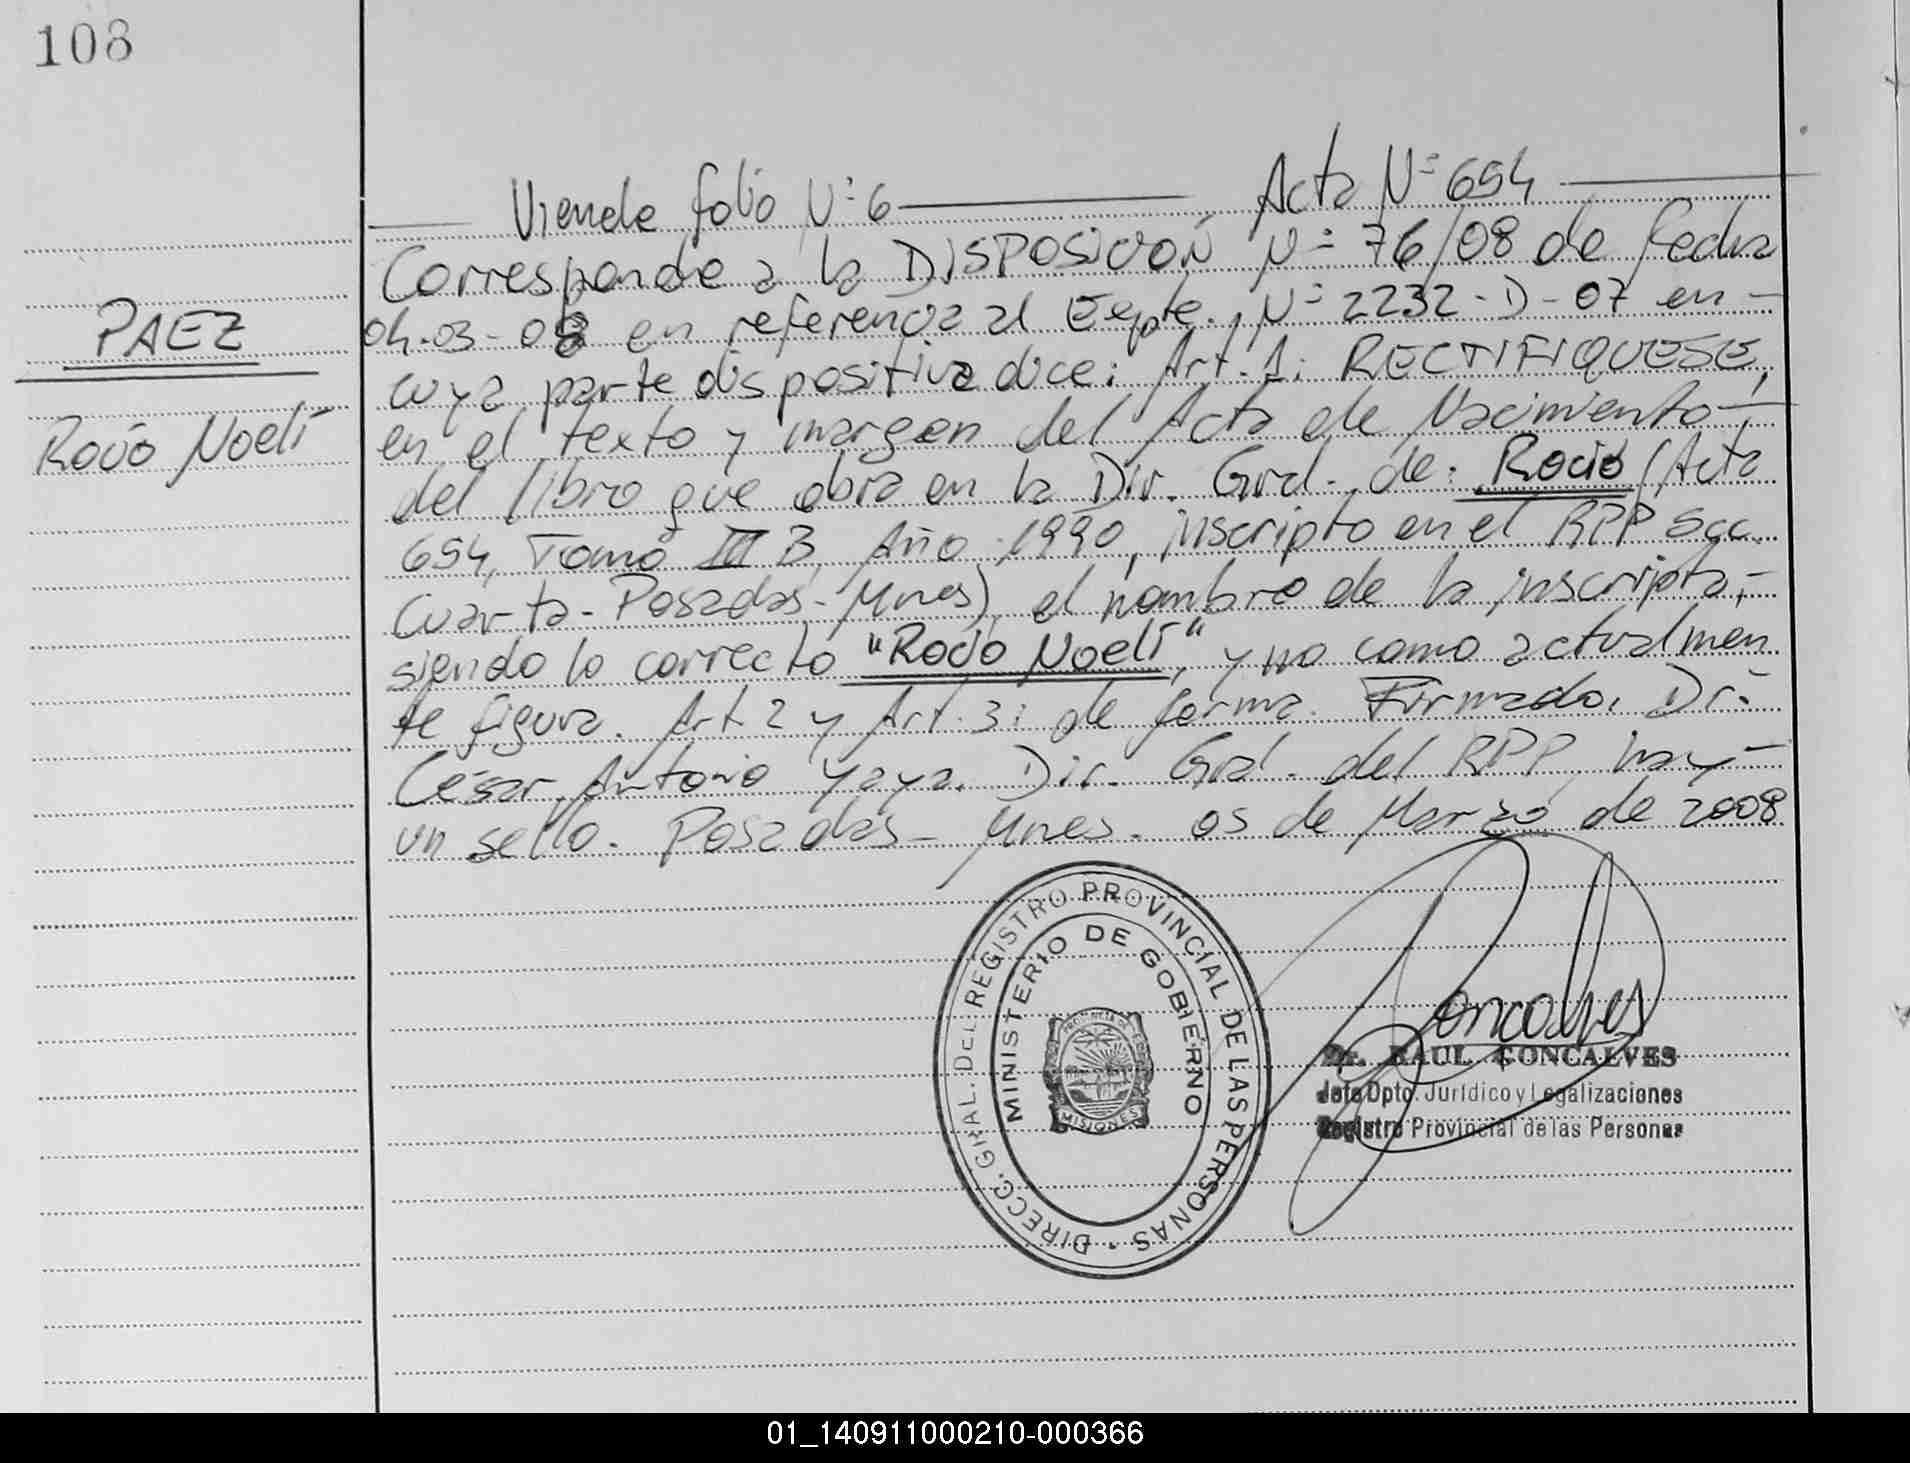 108
Viene de folio Nº 6 — Acta Nº 654 —
Corresponde a la DISPOSICIÓN Nº 76/08 de fecha
PAEZ
04-03-08 en referencia al Expte. Nº 2232-D-07 en-
cuya parte dispositiva dice: Art. 1: RECTIFIQUESE,
Rocío Noelí
en el texto y margen del Acta de Nacimiento-
del libro que obra en la Dir. Gral. de: Rocío (Acta
654, Tomo III B, Año 1990, inscripto en el RPP Scc.
Cuarta-Posadas-Mnes), el nombre de la inscripta,-
siendo lo correcto "Rocío Noelí", y no como actualmen
te figura. Art. 2 y Art. 3: de forma. Firmado. Dr.
César Antonio Yaya. Dir. Gral. del RPP, hay-
un sello. Posadas-Mnes. 05 de Marzo de 2008
DIRECC. GRAL. DEL REGISTRO PROVINCIAL DE LAS PERSONAS
MINISTERIO DE GOBIERNO
PROVINCIA DE
MISIONES
Goncalves
Dr. RAUL GONCALVES
Jefe Dpto. Jurídico y Legalizaciones
Registro Provincial de las Personas
01_140911000210-000366